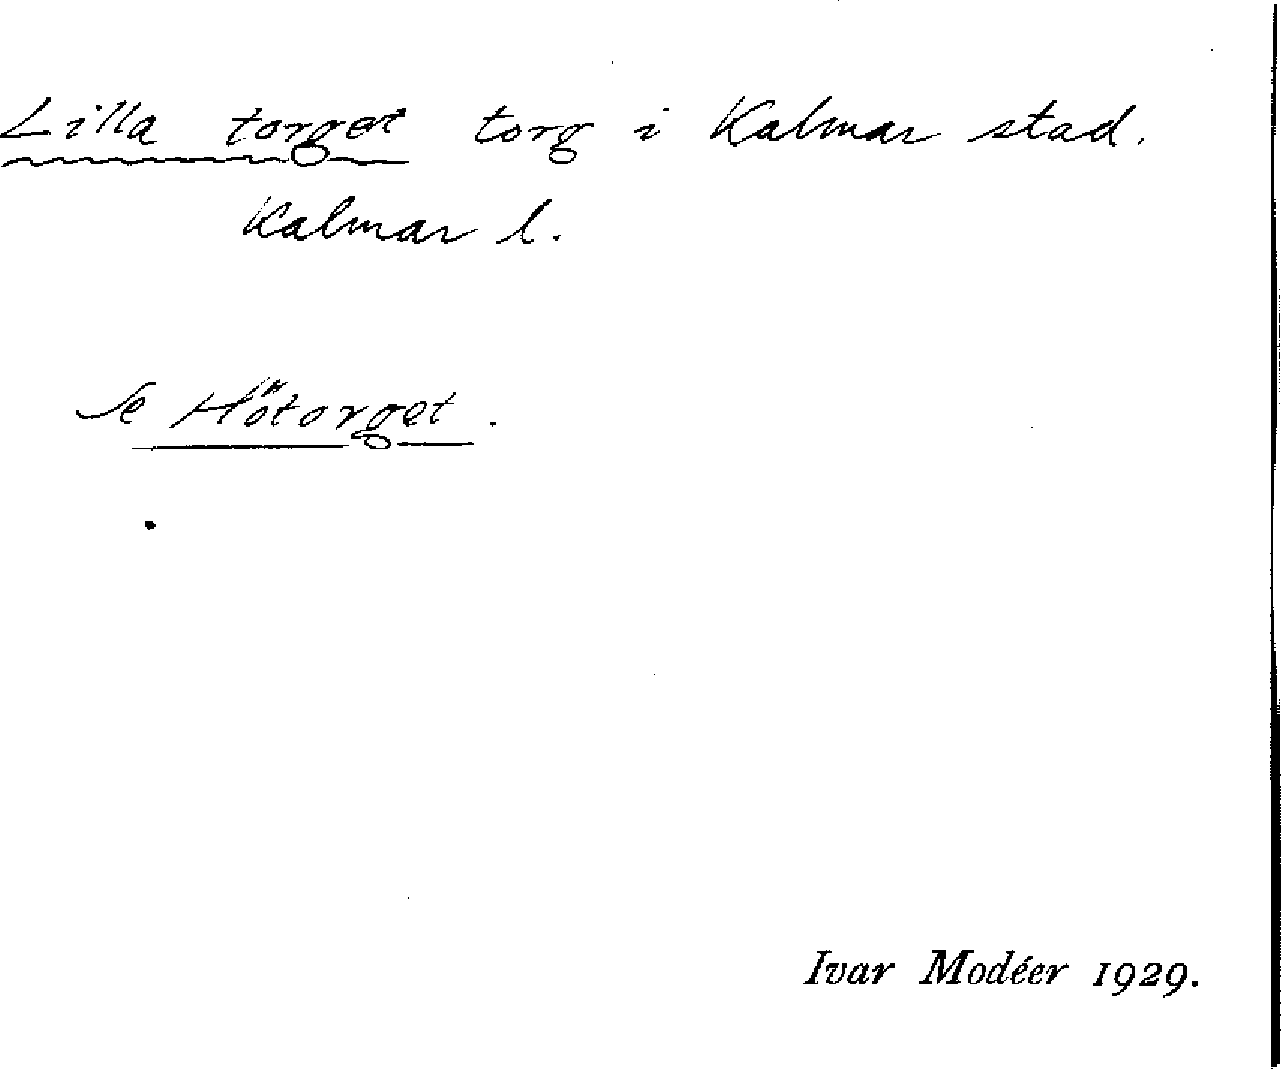 Lilla torget torg i Kalmar stad.
Kalmar l.
Se Hötorget.
Ivar Modéer 1929.